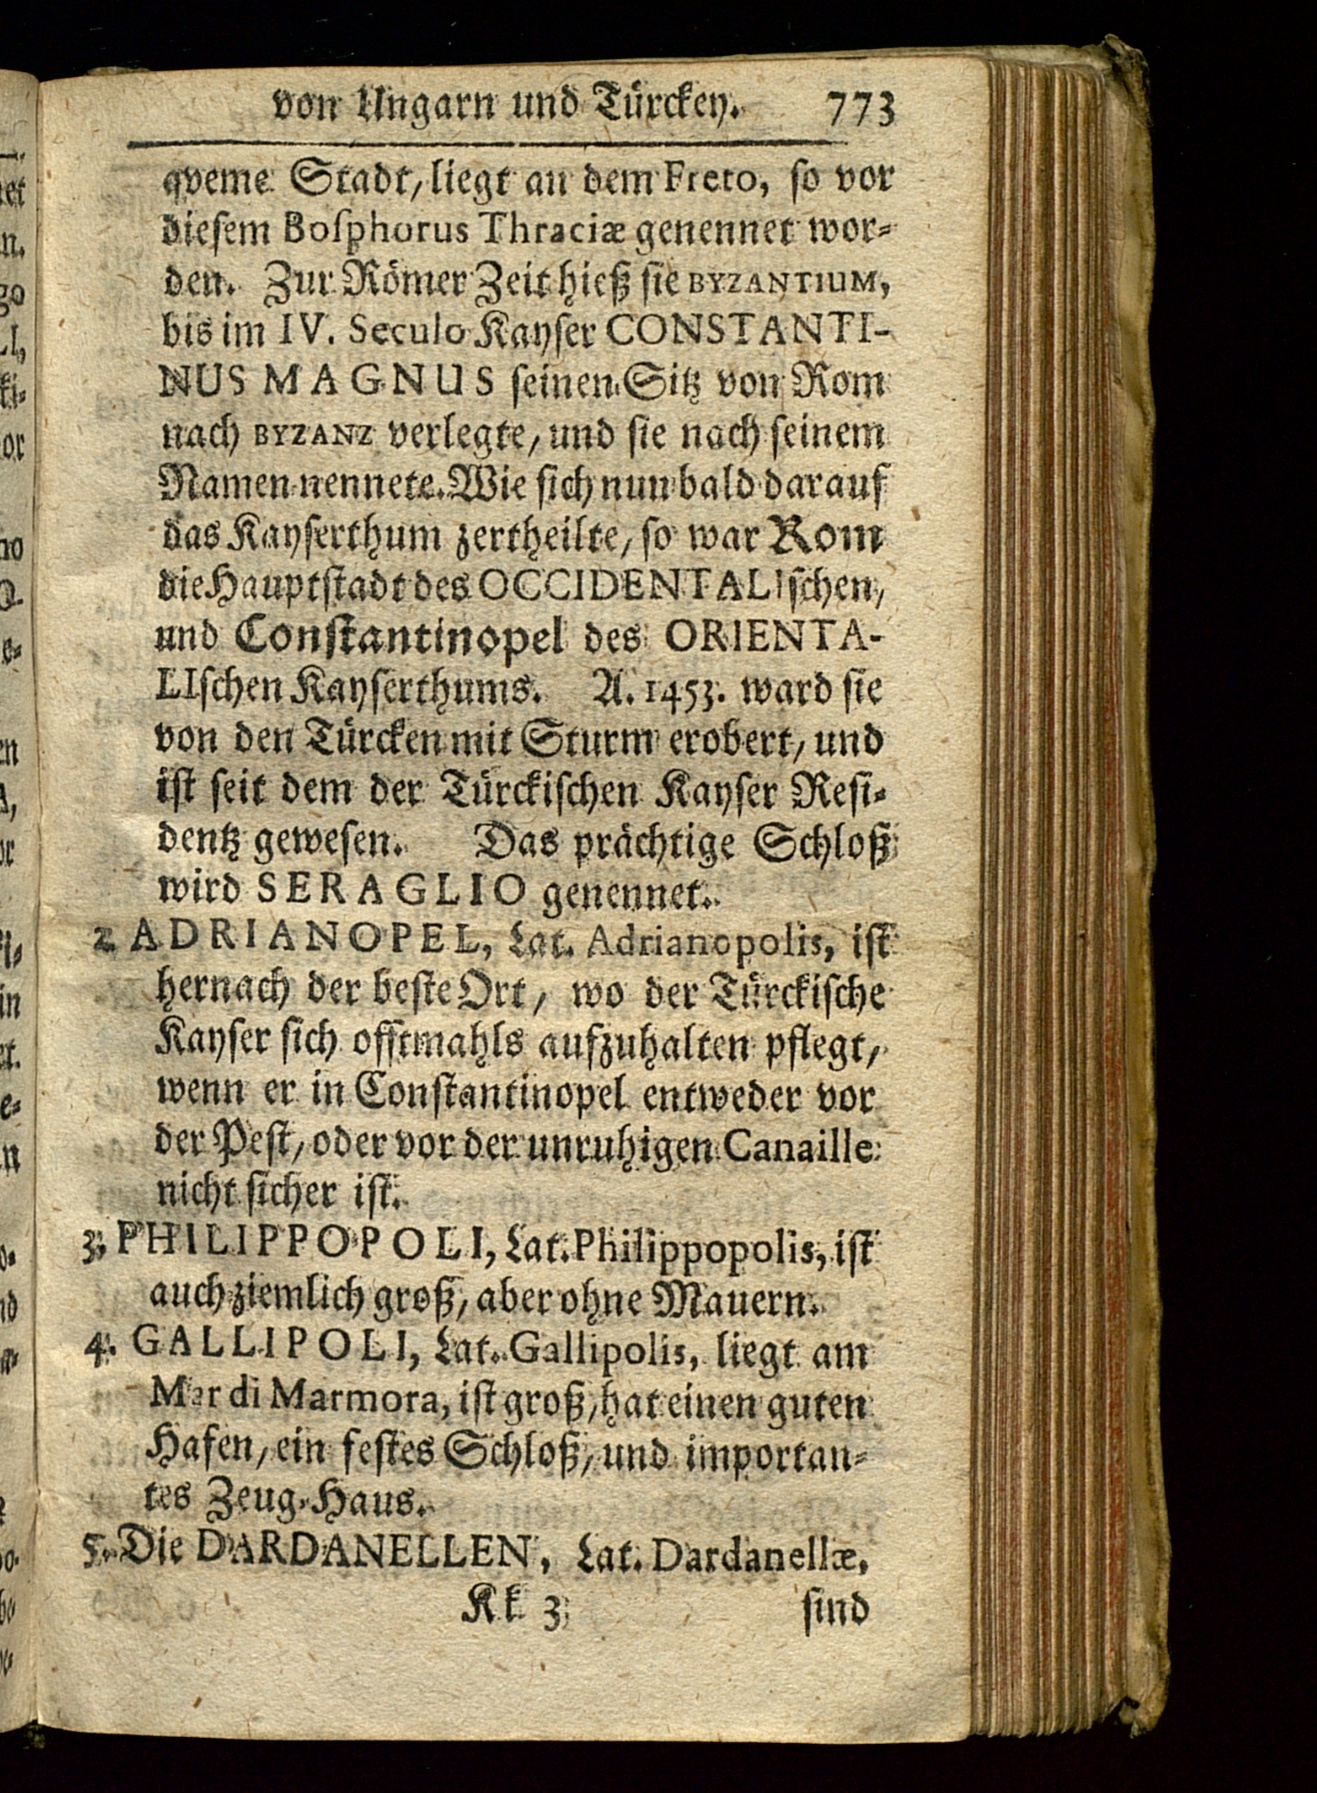 von Ungarn und Türckey. 773
qveme Stadt, liegt an dem Freto, so vor
diesem Bosphorus Thraciæ genennet wor-
den. Zur Römer Zeit hieß sie BYZANTIUM,
bis im IV. Seculo Kayser CONSTANTI-
NUS MAGNUS seinen Sitz von Rom
nach BYZANZ verlegte, und sie nach seinem
Namen nennete. Wie sich nun bald darauf
das Kayserthum zertheilte, so war Rom
die Hauptstadt des OCCIDENTALIschen,
und Constantinopel des ORIENTA-
LIschen Kayserthums. A. 1453. ward sie
von den Türcken mit Sturm erobert, und
ist seit dem der Türckischen Kayser Resi-
dentz gewesen. Das prächtige Schloß
wird SERAGLIO genennet.
2. ADRIANOPEL, Lat. Adrianopolis, ist
hernach der beste Ort, wo der Türckische
Kayser sich offtmahls aufzuhalten pflegt,
wenn er in Constantinopel entweder vor
der Pest, oder vor der unruhigen Canaille
nicht sicher ist.
3. PHILIPPOPOLI, Lat. Philippopolis, ist
auch ziemlich groß, aber ohne Mauern.
4. GALLIPOLI, Lat. Gallipolis, liegt am
Mar di Marmora, ist groß, hat einen guten
Hafen, ein festes Schloß, und importan-
tes Zeug-Haus.
5. Die DARDANELLEN, Lat. Dardanellæ,
Kk 3 sind